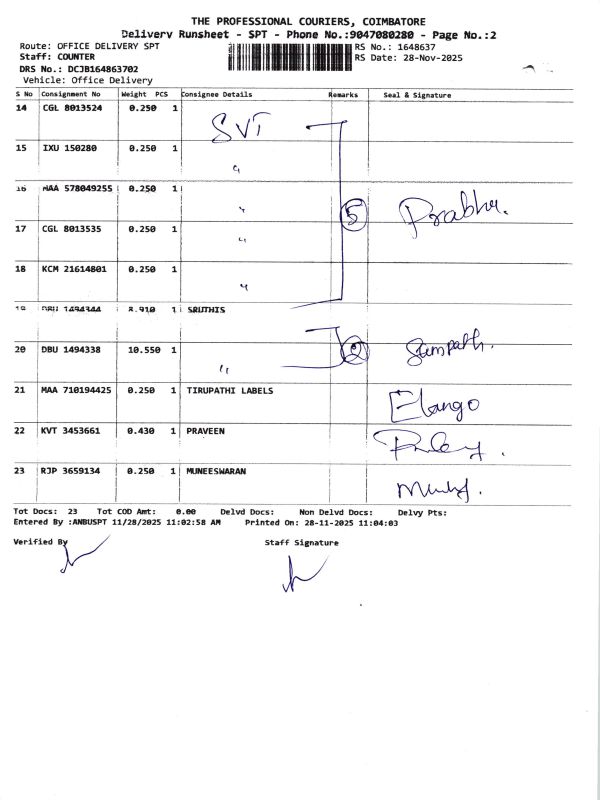 THE PROFESSIONAL COURIERS, COIMBATORE
Delivery Runsheet - SPT - Phone No.:9047080280 - Page No.:2
Route: OFFICE DELIVERY SPT RS No.: 1648637
Staff: COUNTER RS Date: 28-Nov-2025
DRS No.: DCJB164863702
Vehicle: Office Delivery
S No Consignment No Weight PCS Consignee Details Remarks Seal & Signature
14 CGL 8013524 0.250 1 SVT
15 IXU 150280 0.250 1 "
16 MAA 578049255 0.250 1 " 5 Prabhu.
17 CGL 8013535 0.250 1 "
18 KCM 21614801 0.250 1 "
19 DBU 1494344 8.910 1 SRUTHIS
20 DBU 1494338 10.550 1 " 2 Sampath.
21 MAA 710194425 0.250 1 TIRUPATHI LABELS Elango
22 KVT 3453661 0.430 1 PRAVEEN
23 RJP 3659134 0.250 1 MUNEESWARAN
Tot Docs: 23 Tot COD Amt: 0.00 Delvd Docs: Non Delvd Docs: Delvy Pts:
Entered By :ANBUSPT 11/28/2025 11:02:58 AM Printed On: 28-11-2025 11:04:03
Verified By Staff Signature